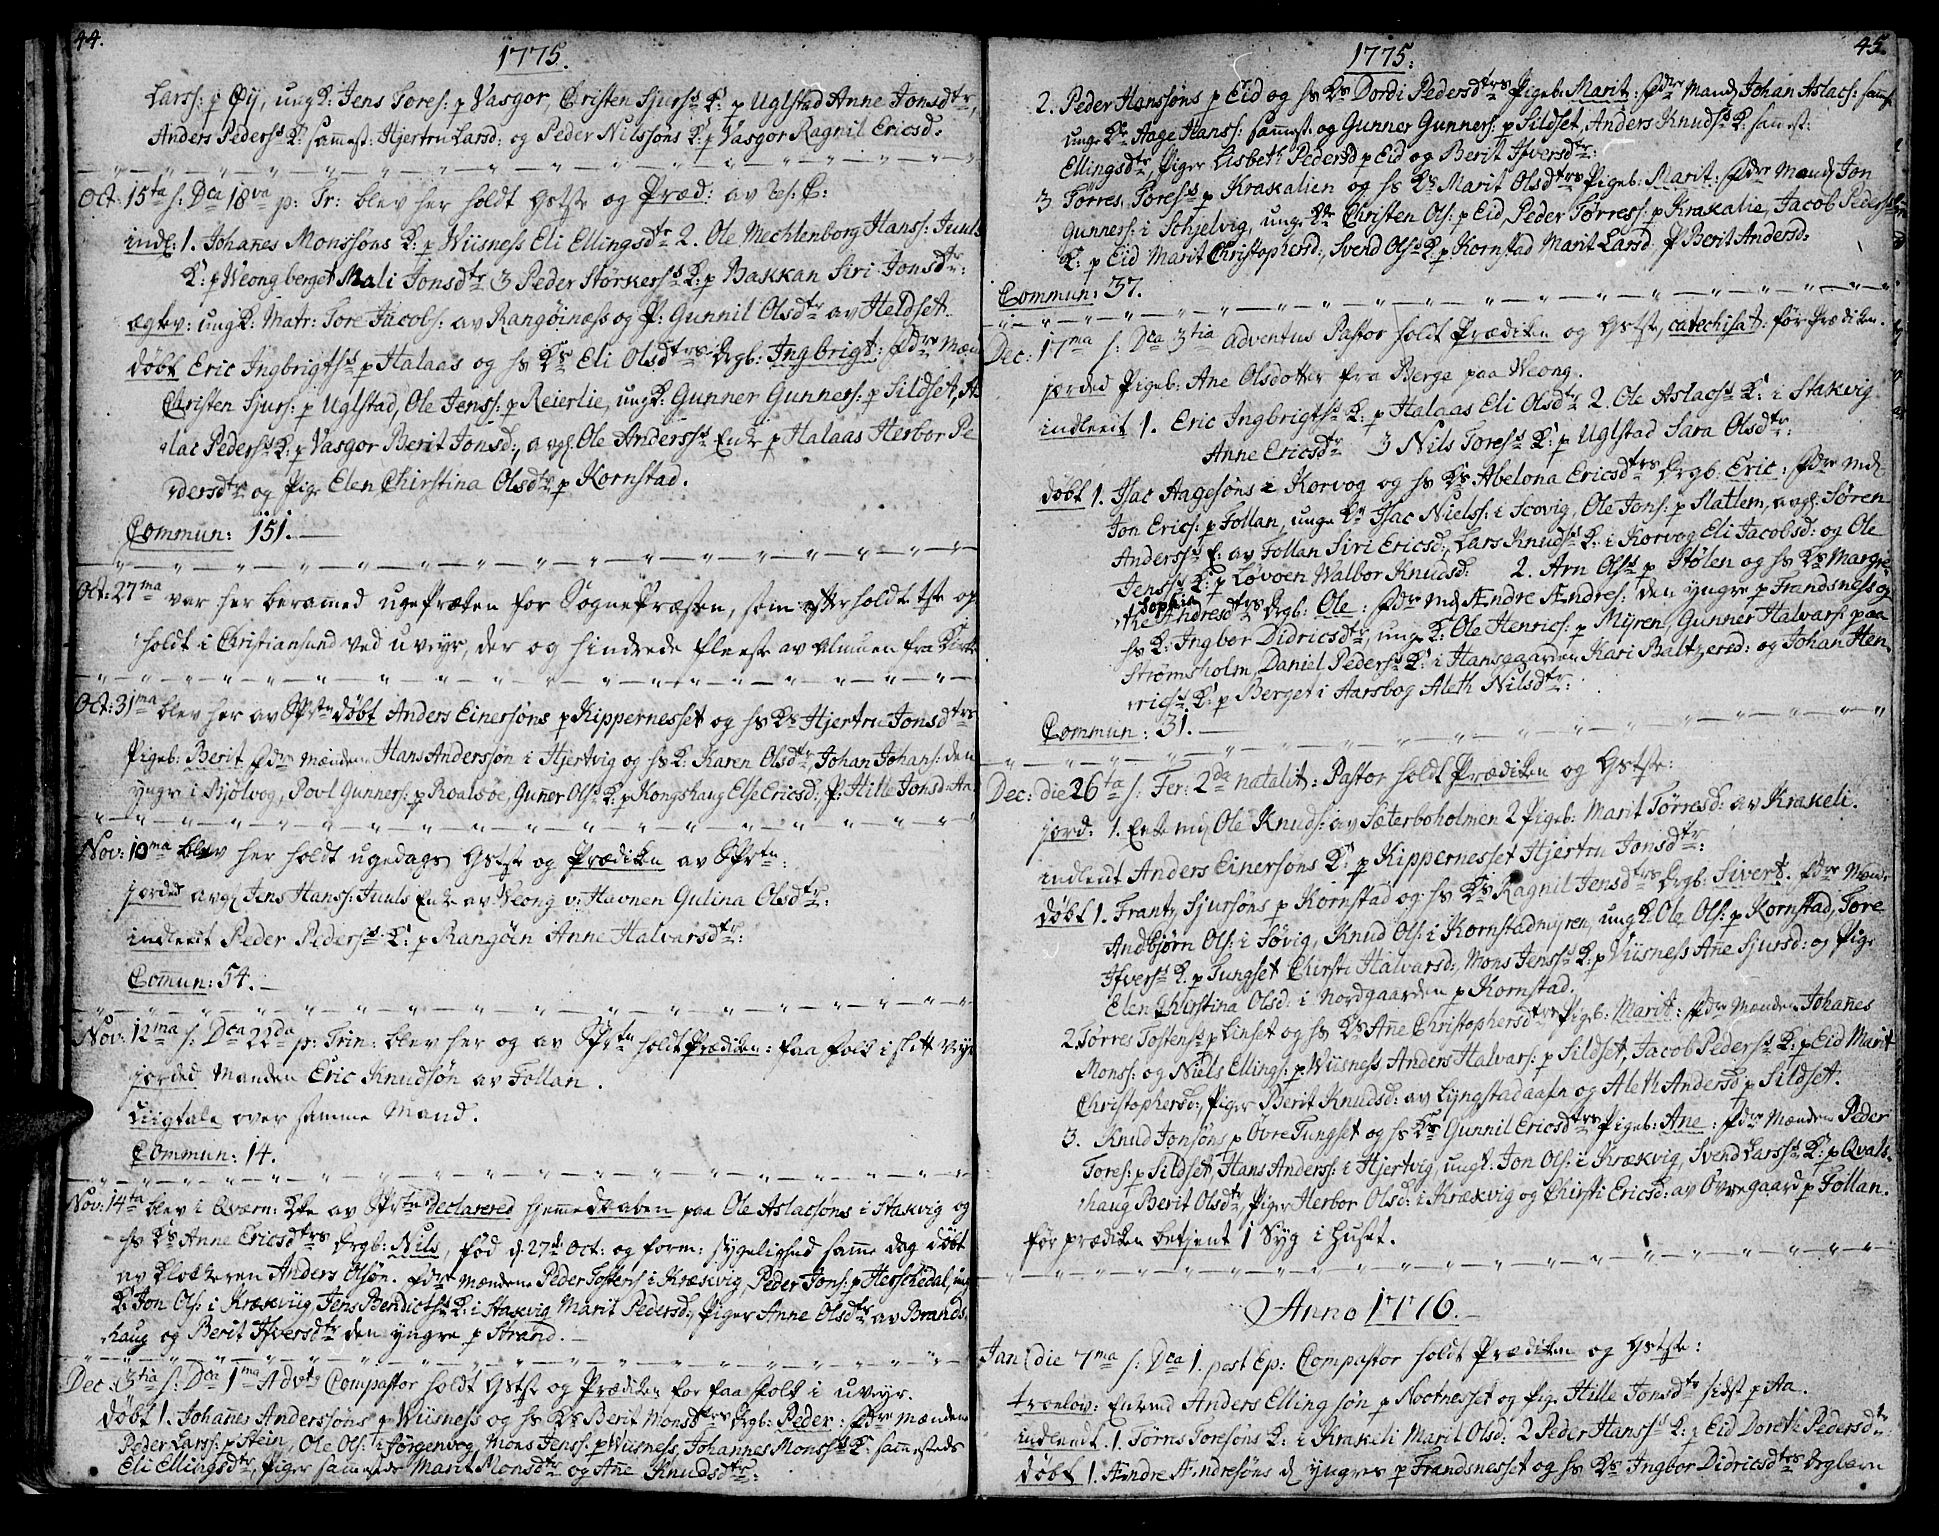 44.
1775.
Larss: p Øij, ungk: Jens Tores: p Vasgor, Christen Sjurss K: p Uglstad Anne Jonsdtr,
Anders Pederss K: sammest: Hjertru Larsd: og Peder Nilssøns K: p Vasgor Ragnil Ericsd:
Oct: 15ta s: Dca 18va p: Tr: blev her holdt Gstste og Præd: av res: C:
indl: 1. Johanes Monssøns K: p Wiisness Eli Ellingsdtr 2. Ole Mechlenborg Hanss: Juuls
K: p Weongberget Mali Jonsdtr 3 Peder Størkerss K: p Bakkan Siri Jonsdtr:
ægtev: ungk: Matr: Tore Jacobs: av Rangøinæss og P: Gunnil Olsdtr av Heldset.
døbt Eric Ingbrigtss p Halaas og hs Ks Eli Olsdtrs Drgb: Ingbrigt: fdre Mæn
Christen Sjurs: p Uglstad, Ole Jenss: p Reierlie, ungk: Gunner Gunners: p Sildset, As
lac Pederss K: p Vasgor Berit Jonsd:, avgl: Ole Anderss Enke p Halaas Herbor Pe
dersdtr og Pige Elen Chirstina Olsdtr p Kornstad.
Commun: 151.
Oct: 27ma var her berammed ugePræken for SognePræsten, som efterholdt tste op
holdt i Christiansund ved uveyr, der og hindrede fleeste av Almuen fra Kirke
Oct: 31ma blev her av Sprsten døbt Anders Einersøns p Kippernesset og hs Ks Hjertru Jonsdtrs
Pigeb: Berit fdre mændene Hans Anderssøn i Hjertvig og hs K: Karen Olsdtr, Johan Johans: den
yngre i Bjølvog, Povl Gunners: p Roalsøe, Guner Olss K: p Kongshaug Else Ericsd:, P: Hille Jonsd: Aa
Nov: 10ma blev her holdt ugedags Gstste og Prædiken av Sprstn:
jorded avgl Jens Hanss: Juuls Enke av Weong v: Havnen Gulina Olsdtr:
indleedt Peder Pederss K: p Rangøen Anne Halvarsdtr:
Comun: 54.
Nov: 12ma s: Dca 22da p: Trin: blev her og av Sprstn holdt Prædiken: faa folk i slet veyr
jorded Manden Eric Knudsøn av Follan.
Liigtale over samme Mand.
Commun: 14.
Nov: 14ta blev i Qværn: Kke av Sprstn declarered hiemmedaaben paa Ole Aslacsøns i Stakvig og
hs Ks Anne Ericsdtrs Drgb: Nils, fød d: 27de Oct: og form: sygelighed samme dag døbt
av Klokkeren Anders Olsøn. fdre mændene Peder Tostens: i Kræxvig, Peder Jons: p Herskedal, ung
K: Jon Ols: i Kræxviig, Jens Bendictss K: i Stakvig Marit Pedersd:, Piger Anne Olsdtr av Brands
haug og Berit Ifversdtr den yngre p Strand.
Dec: 3tia s: Dca 1ma Advts Compastor holdt Gstste og Prædiken for faa folk i uveyr.
døbt 1. Johanes Anderssøns p Wiisness og hs Ks Berit Monsdtrs Drgb: Peder: fdre mændene
Peder Larss: p Stein, Ole Ols: i Jørgenvog, Mons Jenss: p Wiisness, Johannes Monss K: sammesteds
Eli Ellingsdtr, Piger sammesteds Marit Monsdtr og Ane Knudsdtr:
45.
1775.
2. Peder Hanssøns p Eid og hs Ks Dordi Pedersdtrs Pigeb: Marit: fdre Mand Johan Aslacs: samst
unge K: Aage Hanss: samest: og Gunner Gunners: p Sildset, Anders Knudss K: samest:
Ellingsdtr, Piger Lisbeth Pedersd p Eid og Berit Ifversdtr:
3 Tørres Toress p Krakalien og hs Ks Marit Olsdtrs Pigeb: Marit: fdre Mænd Jon
Gunners: i Schjelvig, unge K: Christen Ols: p Eid, Peder Tørress: p Krakalie, Jacob Pederss
K: p Eid Marit Christophersd:, Svend Olss K: p Kornstad Marit Larsd, P Berit Andersd:
Commun: 37.
Dec: 17ma s: Dca 3tia adventus Pastor holdt Prædiken og Gstste, catechisat: før Prædiken.
jorded Pigeb: Ane Olsdotter fra Berge paa Weong.
indleedt 1. Eric Ingbrigtss K: p Halaas Eli Olsdtr 2. Ole Aslacss K: i Stakvig
Anne Ericsdtr 3 Nils Toress K: p Uglstad Sara Olsdtr:
døbt 1. Isac Aagesøns i Korvog og hs Ks Abelona Ericsdtrs Drgb: Eric: fdre md
Jon Erics: p Follan, unge K: Isac Niels: i Scovig, Ole Jons: p Slatlem, avgl: Søren
Anderss E: av Follan Siri Ericsd:, Lars Knudss K: i Korvog Eli Jacobsd: og Ole
Jenss K: p Løvøen Walbor Knudsd: 2. Arn Olss p Stølen og hs Ks Margre
the Sophia Andresdtrs Drgb: Ole: fdre md Ændre Ændres: den yngre p Frandsness og
hs K: Ingbor Didricsdtr, ung K: Ole Henrics: p Myren, Gunner Halvars: paa
Strømsholm, Daniel Pederss K: i Hansgaarden Kari Baltzered: og Johan Hen
ricss K: p Berget i Aarsbog Aleth Nilsdtr:
Commun: 31.
Dec: die 26ta s: Fer: 2da natalit: Pastor holdt Prædiken og Gstste:
jord: 1. Enkemd Ole Knuds: av Sæterboholmen 2 Pigeb: Marit Tørresd: av Krakeli.
indleedt Anders Einersøns K: p Kippernesset Hjertru Jonsdtr:
døbt 1. Frantz Sjursøns p Kornstad og hs Ks Ragnil Jensdtrs Drgb: Sivert. fdre Mænd
Andbjørn Ols: i Søvig, Knud Ols: i Kornstadmyren, ung K: Ole Ols: p Kornstad, Tore
Ifverss K: p Tungset Chirsti Halvarsd:, Mons Jenss K: p Viisness Ane Sjursd: og Pige
Elen Chirstina Olsd: i Nordgaarden p Kornstad.
2. Tørres Tostens: p Linset og hs Ks Ane Christophersdtrs Pigeb: Marit: fdre Mænden Johanes
Monss: og Niels Ellings: p Wiisness Anders Halvars: p Sildset, Jacob Pederss K: p Eid Marit
Christophersd:, Piger Berit Knudsd: av Lyngstadaasen og Aleth Andersd p Sildset.
3. Knud Jonsøns p Øvre Tungset og hs Ks Gunnil Ericsdtrs Pigeb: Ane: fdre Mænden Peder
Tores: p Sildset, Hans Anderss: i Hjertvig, ungk: Jon Ols: i Kræxvig, Svend Larss K: p Qvals-
haug Berit Olsdtr, Piger Herbor Olsd: i Kræxvig og Chirsti Ericsd: av Øvregaard p Follan.
før prædiken betjent 1 Syg i Huset.
Anno 1776.
Jan: die 7ma s: Dca 1. post Ep: Compastor holdt Prædiken og Gstste:
troelov: Enkemd Anders Ellingsøn p Nootnesset og Pige Hille Jonsdtr sidst p Aa.
indleedt: 1. Tørris Toresøns K: i Krakeli Marit Olsd: 2 Peder Hanss K: p Eid Dorethe Pedersdtr
døbt 1. Ændre Ændresøns d yngres p Frandsnesset og hs Ks Ingbor Didricsdtrs Drgbarn